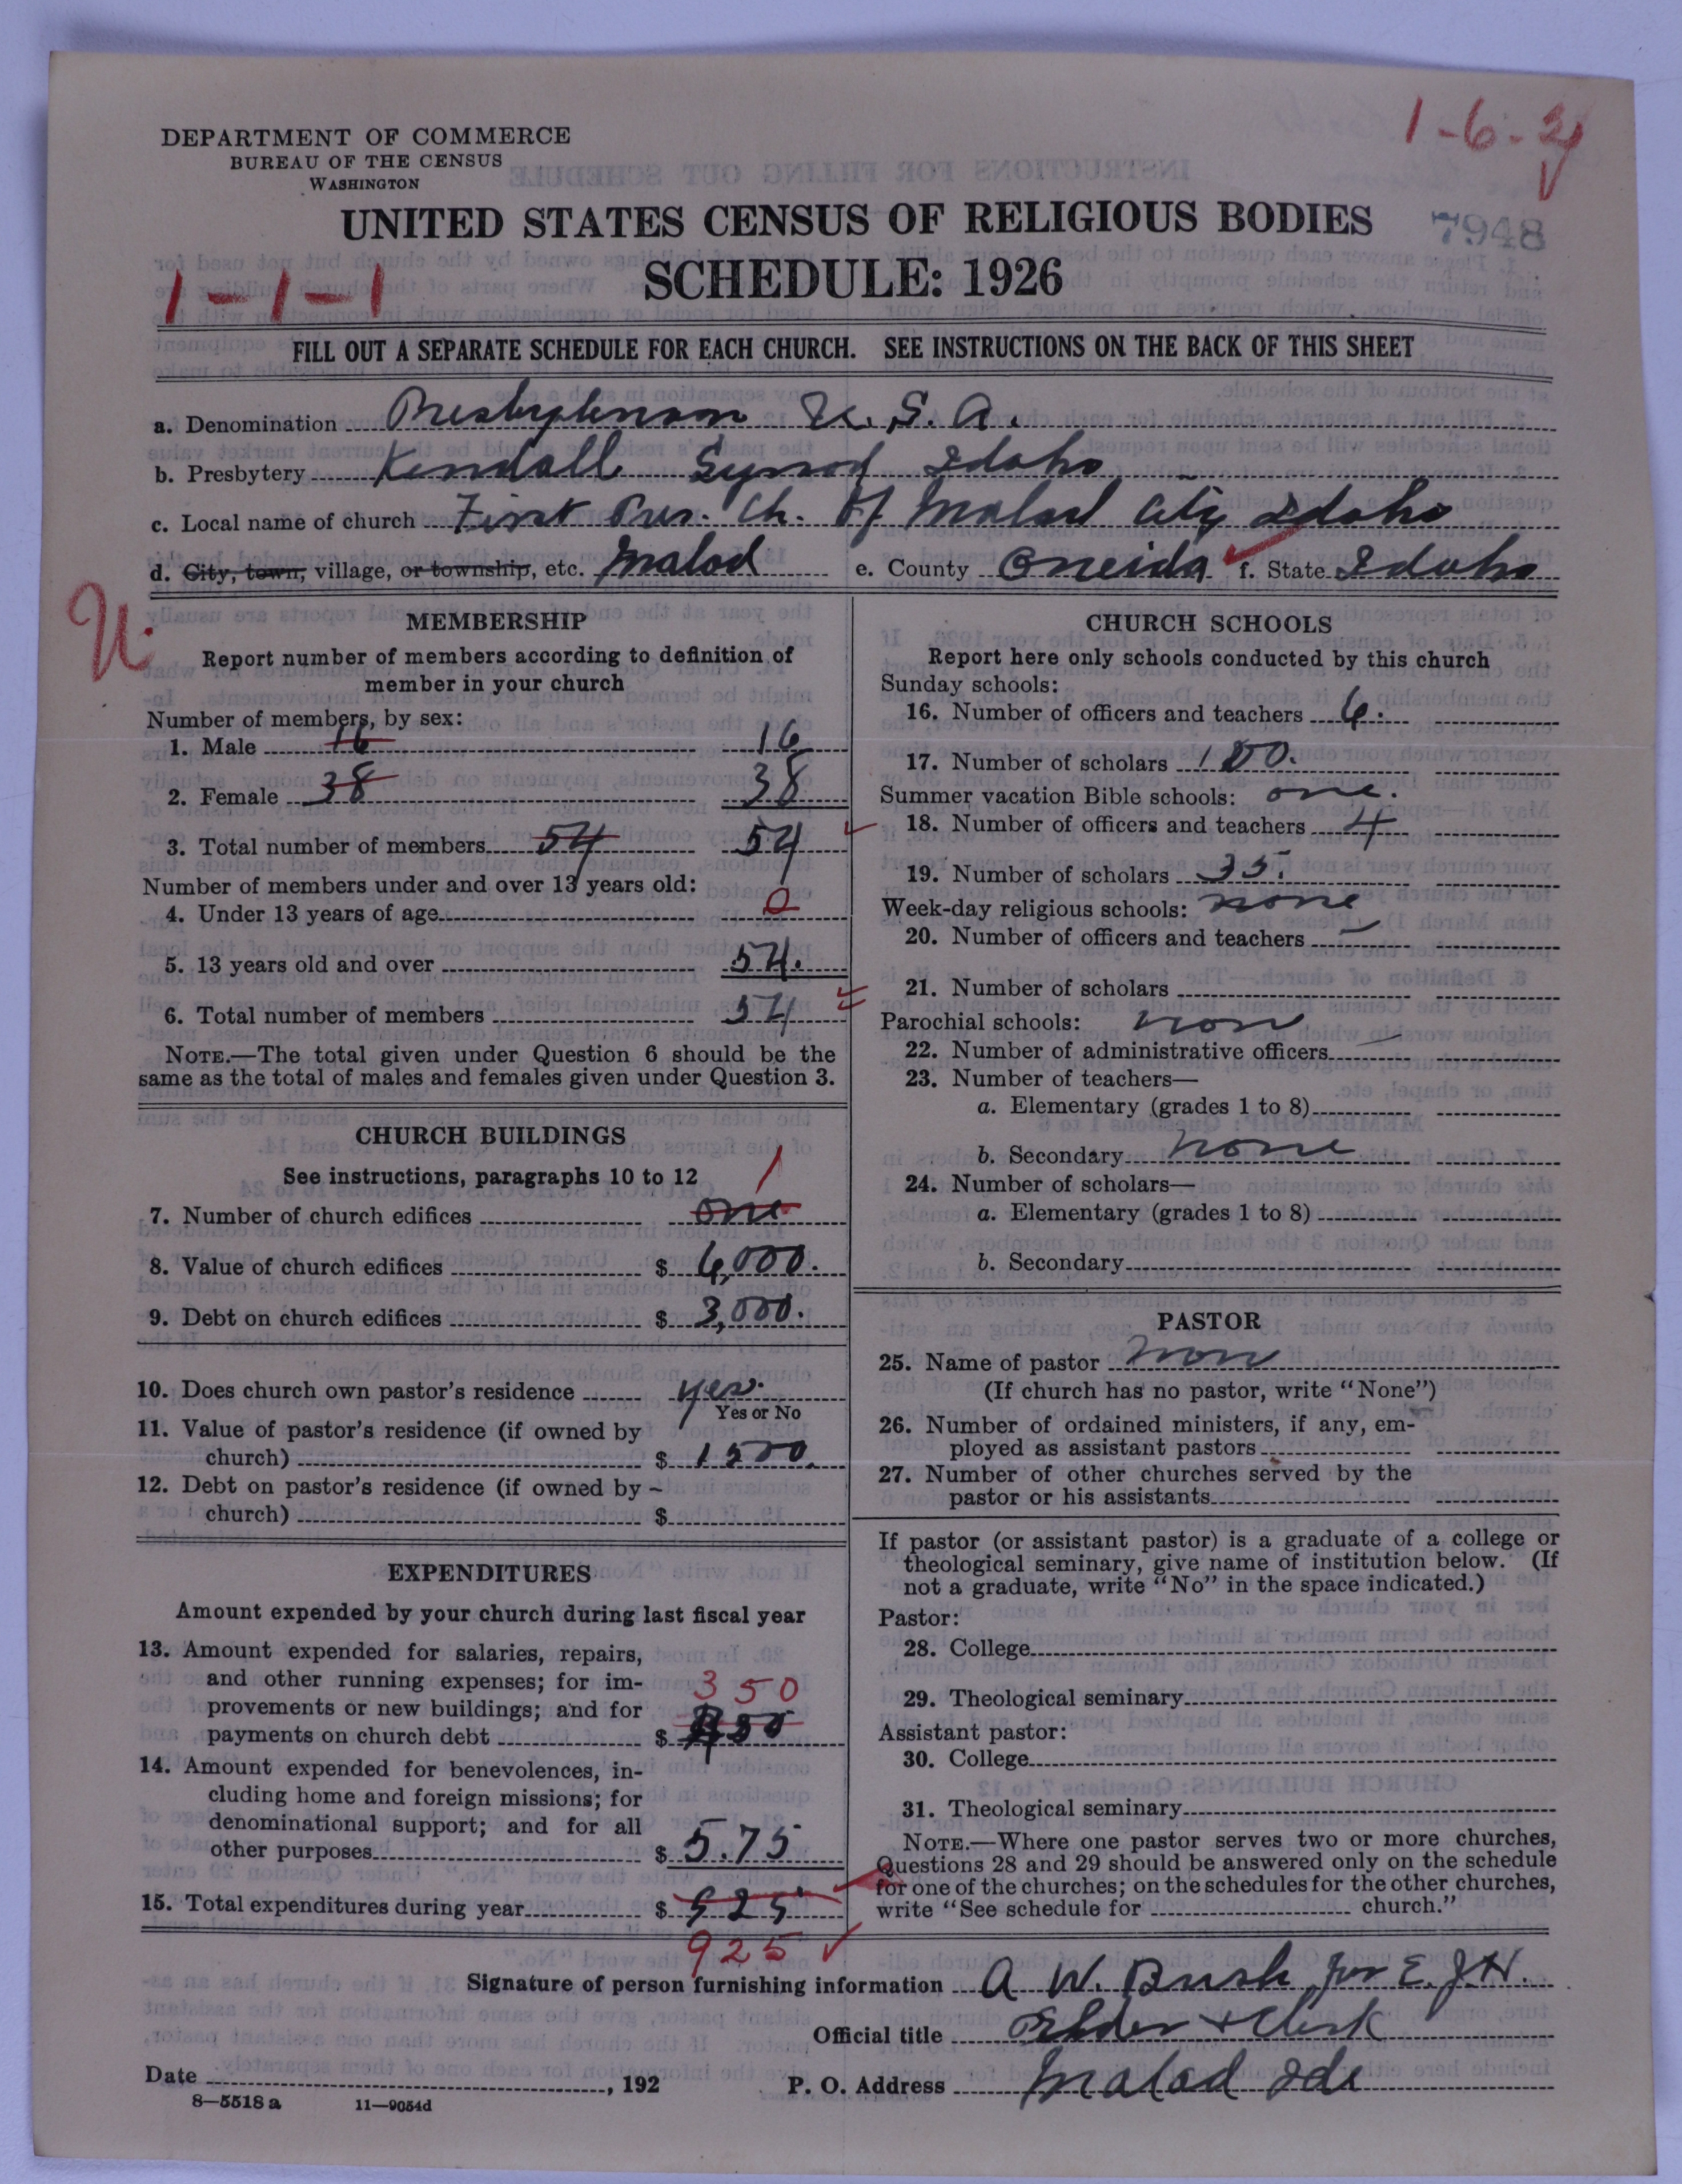 1-6-2
DEPARTMENT OF COMMERCE
BUREAU OF THE CENSUS
WASHINGTON
UNITED STATES CENSUS OF RELIGIOUS BODIES
7948
SCHEDULE: 1926
1-1-1
FILL OUT A SEPARATE SCHEDULE FOR EACH CHURCH. SEE INSTRUCTIONS ON THE BACK OF THIS SHEET
a. Denomination Presbyterian U.S.A.
b. Presbytery Kendall Synod Idaho
c. Local name of church First Pres. Ch. Of Malad City Idaho
d. City, town, village, or township, etc. Malad e. County Oneida f. State Idaho
U.
MEMBERSHIP
Report number of members according to definition of
member in your church
Number of members, by sex:
1. Male 16 16
2. Female 38 38
3. Total number of members 54 54
Number of members under and over 13 years old:
4. Under 13 years of age 0
5. 13 years old and over 54.
6. Total number of members 54
NOTE.—The total given under Question 6 should be the
same as the total of males and females given under Question 3.
CHURCH BUILDINGS
See instructions, paragraphs 10 to 12
1
7. Number of church edifices one
8. Value of church edifices $ 6,000.
9. Debt on church edifices $ 3,000.
10. Does church own pastor's residence yes.
Yes or No
11. Value of pastor's residence (if owned by
church) $ 1500.
12. Debt on pastor's residence (if owned by
church) $
EXPENDITURES
Amount expended by your church during last fiscal year
13. Amount expended for salaries, repairs,
and other running expenses; for im-
provements or new buildings; and for
350
payments on church debt $
14. Amount expended for benevolences, in-
cluding home and foreign missions; for
denominational support; and for all
other purposes $ 5.75
15. Total expenditures during year $ 925
925
CHURCH SCHOOLS
Report here only schools conducted by this church
Sunday schools:
16. Number of officers and teachers 6.
17. Number of scholars 100.
Summer vacation Bible schools: one.
18. Number of officers and teachers 4
19. Number of scholars 35.
Week-day religious schools: none
20. Number of officers and teachers —
21. Number of scholars
Parochial schools: non
22. Number of administrative officers
23. Number of teachers—
a. Elementary (grades 1 to 8)
b. Secondary none
24. Number of scholars—
a. Elementary (grades 1 to 8)
b. Secondary
PASTOR
25. Name of pastor non
(If church has no pastor, write "None")
26. Number of ordained ministers, if any, em-
ployed as assistant pastors
27. Number of other churches served by the
pastor or his assistants
If pastor (or assistant pastor) is a graduate of a college or
theological seminary, give name of institution below. (If
not a graduate, write "No" in the space indicated.)
Pastor:
28. College
29. Theological seminary
Assistant pastor:
30. College
31. Theological seminary
NOTE.—Where one pastor serves two or more churches,
Questions 28 and 29 should be answered only on the schedule
for one of the churches; on the schedules for the other churches,
write "See schedule for church."
Signature of person furnishing information A W. Bush for E. J. H.
Official title Elder + Clerk
Date , 192 P. O. Address Malad Ida
8—5518 a 11—9054d